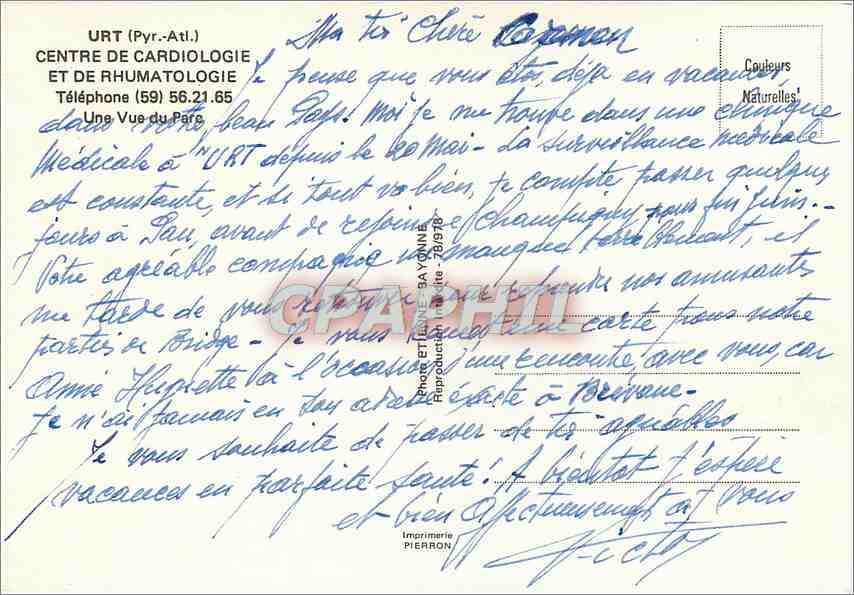 URT (Pyr.-Atl.)
CENTRE DE CARDIOLOGIE
ET DE RHUMATOLOGIE
Téléphone (59) 56.21.65
Une Vue du Parc
Couleurs
Naturelles
Ma très Chère Carmen
Je pense que vous êtes, déjà en vacances,
dans votre beau Pays. Moi je me trouve dans une clinique
Médicale à "URT depuis le 20 Mai - La surveillance médicale
est constante, et si tout va bien, je compte passer quelques
jours à Pau, avant de rejoindre Champugny pour fin Juin. -
Votre agréable compagnie me manque terriblement, il
me tarde de vous retrouver pour reprendre nos amusantes
parties de Bridge - Je vous une carte pour notre
Amie Huguette à l'occasion d'une rencontre, avec vous, car
Je n'ai jamais eu son adresse exacte à Brévane -
Je vous souhaite de passer de très agréables
vacances en parfaite santé! A bientôt j'espère
et bien Affectueusement à Vous
Victor
Photo ETIENNE - BAYONNE
Reproduction Interdite - 78/978
CPAPHIL
Imprimerie
PIERRON